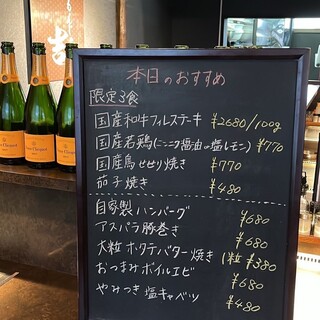 本日のおすすめ
限定3食
国産和牛フィレステーキ ¥2680/100g
国産若鶏(ニンニク醤油 or 塩レモン) ¥770
国産鳥せせり焼き ¥770
茄子焼き ¥480
自家製ハンバーグ ¥680
アスパラ豚巻き ¥680
大粒ホタテバター焼き 1粒 ¥380
おつまみボイルエビ ¥680
やみつき塩キャベツ ¥480